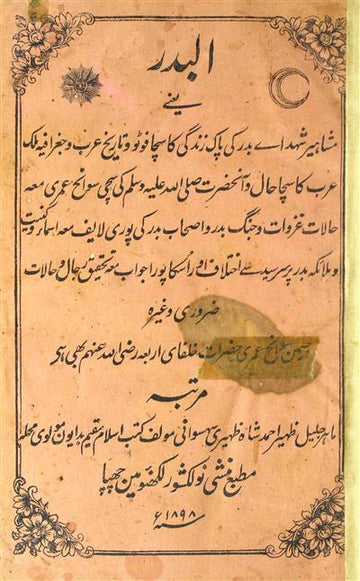 البدر
یعنے
مشاہیر شہداے بدر کی پاک زندگی کا سچا فوٹو و تاریخ عرب و جغرافیہ ملک
عرب کا سچا حال و آنحضرت صلی اللہ علیہ وسلم کی سچی سوانح عمری معہ
حالات غزوات و جنگ بدر و اصحاب بدر کی پوری لایف معہ اسما و کنیت
و ملائکہ بدر پر سرسید سے اختلاف اور اُسکا پورا جواب معہ تحقیق رجال و حالات
ضروری وغیرہ
اسمین سوانح عمری حضرات خلفای اربعہ رضی اللہ عنہم بھی ہی
مرتبہ
ماہر جلیل ظہیر احمد شاہ ظہیری سہسوانی مولف کتب اسلام مقیم بدایون مولوی محلہ
مطبع منشی نولکشور لکھنؤ مین چھپا
سنہ ۱۸۹۸ ء